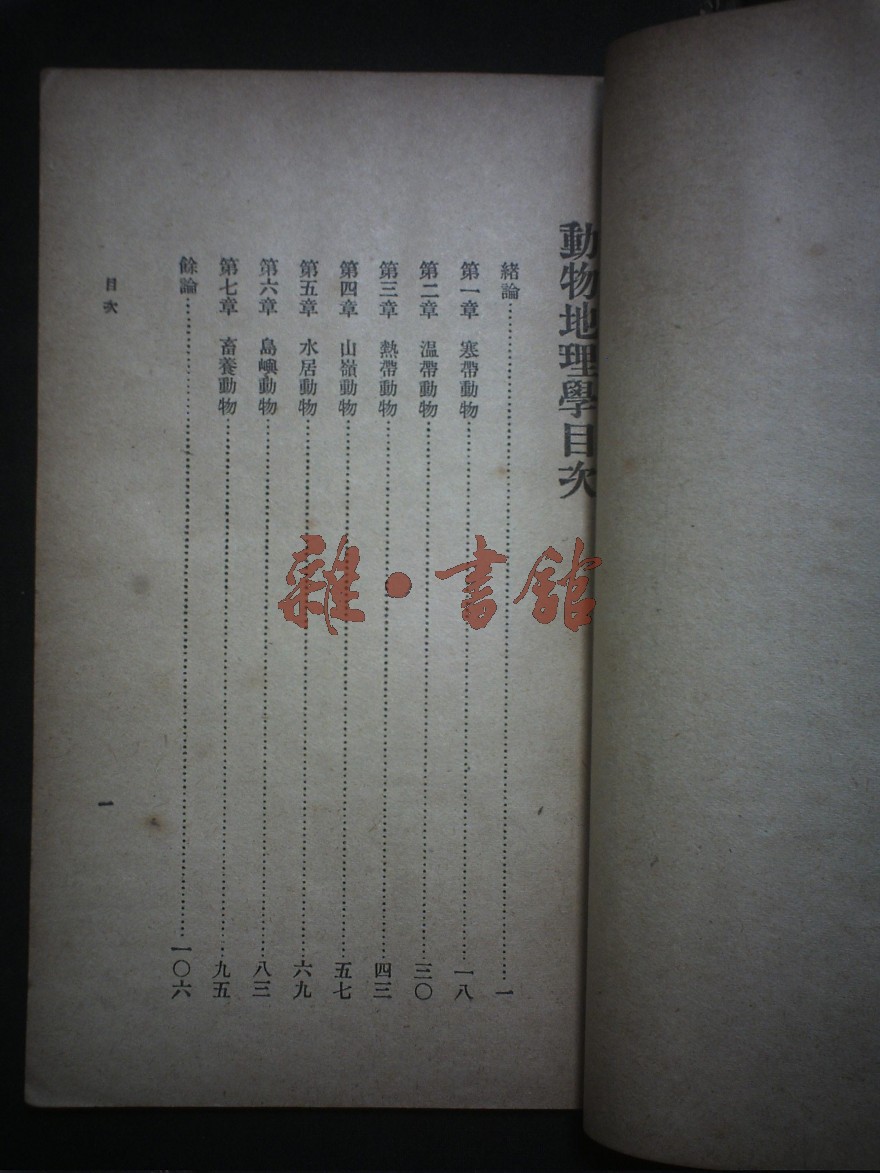 動物地理學目次
緒論……一
第一章 寒帶動物……一八
第二章 温帶動物……三〇
第三章 熱帶動物……四三
第四章 山嶺動物……五七
第五章 水居動物……六九
第六章 島嶼動物……八三
第七章 畜養動物……九五
餘論……一〇六
目次
一
雜·書館